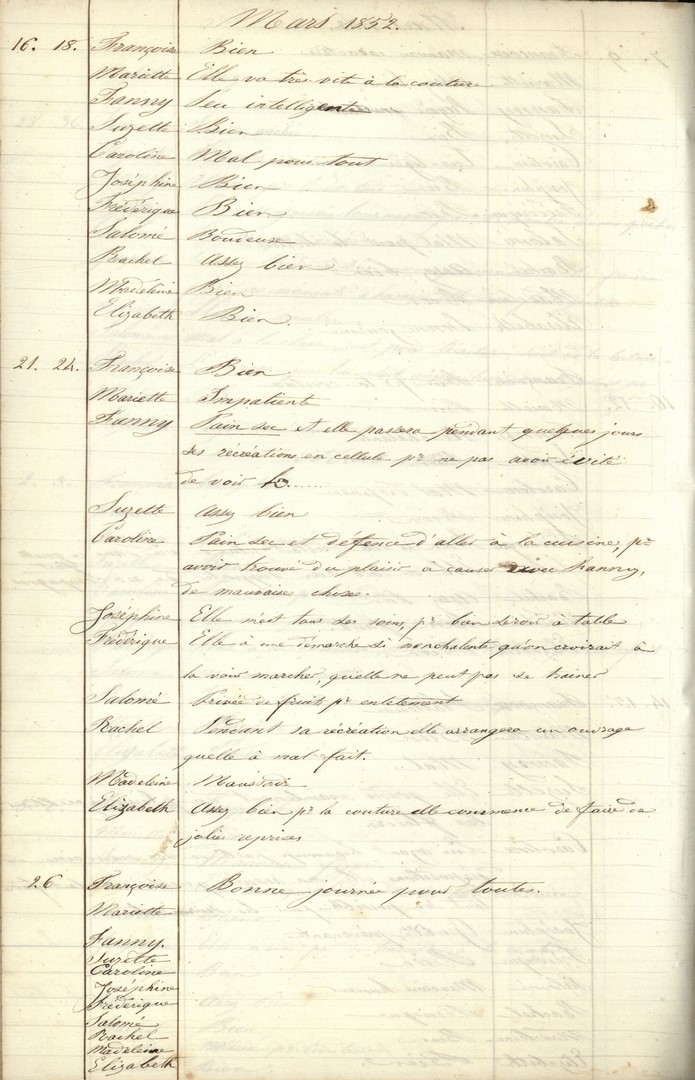 Mars 1852.
16. 18. Françoise Bien
Mariette Elle va très vite à la couture
Fanny Peu intelligente
Suzette Bien
Caroline Mal pour tout
Joséphine Bien
Frédérique Bien
Salomé Boudeuse
Rachel Assez bien
Madeleine Bien
Elizabeth Bien.
21. 24. Françoise Bien
Mariette Impatiente
Fanny Pain sec et elle passera pendant quelques jours
ses récréations en cellule pr ne pas avoir évité
de voir
Suzette Assez bien
Caroline Pain sec et défence d'aller à la cuisine, pr
avoir trouvé du plaisir à causer avec Fanny,
de mauvaises choses.
Joséphine Elle met tous ses soins, pr bien servir à table
Frédérique Elle à une démarche si nonchalente qu'on croirait à
la voir marcher, quelle ne peut pas se trainer
Salomé Privée de fruit pr entetement
Rachel Pendant sa récréation elle arrangera un ouvrage
quelle à mal fait.
Madeleine Maussade
Elizabeth Assez bien pr la couture elle commence de faire de
jolies reprises
26 Françoise Bonne journée pour toutes.
Mariette
Fanny.
Suzette
Caroline
Joséphine
Frédérique
Salomé
Rachel
Madeleine
Elizabeth